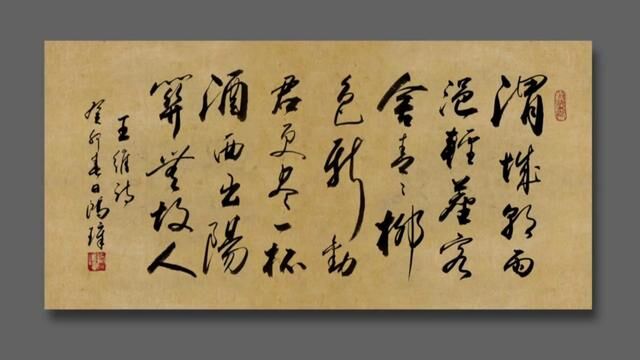 渭城朝雨
浥輕塵客
舍青〻柳
色新勸
君更尽一杯
酒西出陽
關無故人
王維詩
癸卯春日